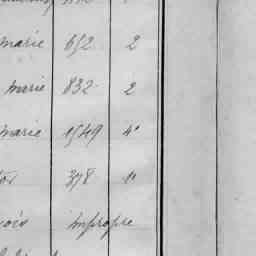 marie 652 2
marie 832 2
marie 1549 4°
378 1°
Impropre